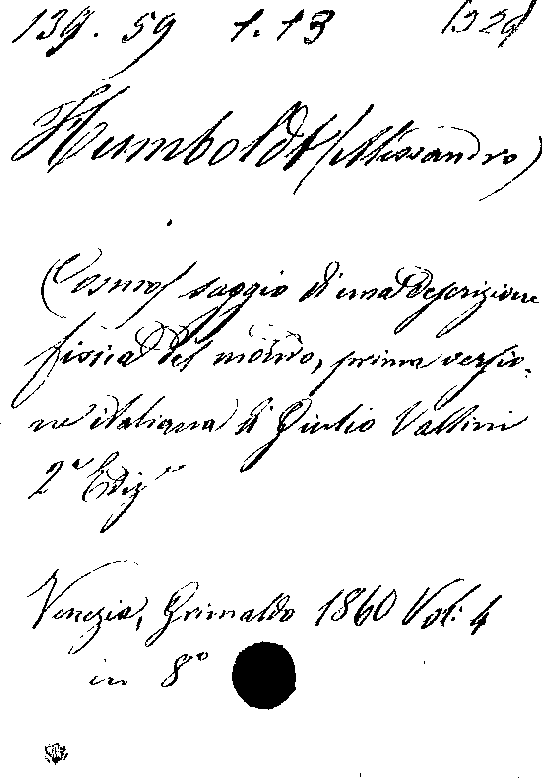 139. 59 1.13
Humboldt (Alessandro)
Cosmos saggio di una descrizione
fisica del mondo, prima versio-
ne italiana di Giulio Vallini
2ª Edizⁿᵉ
Venezia, Grimaldo 1860 Vol: 4
in 8º